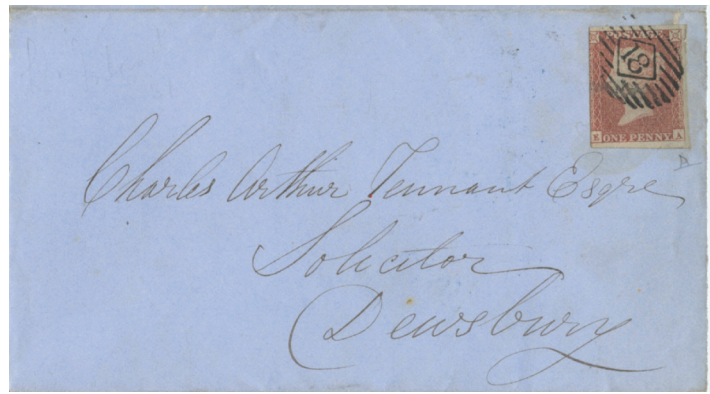 18
ONE PENNY
K A
Charles Arthur Tennant Esqre
Solicitor
Dewsbury